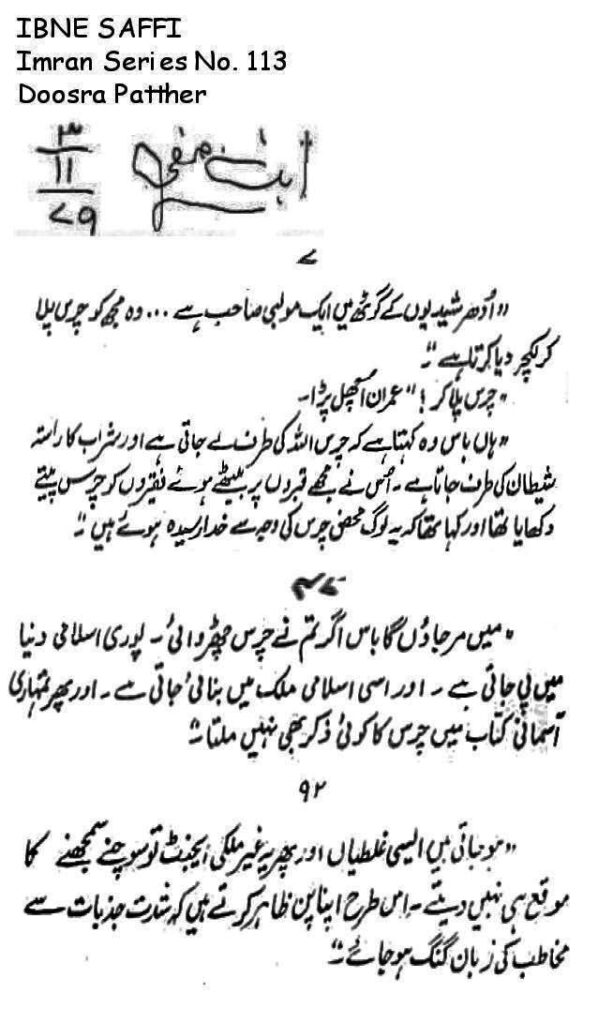 IBNE SAFFI
Imran Series No. 113
Doosra Patther
۳
۱۱
۷۹
ابن صفی
۷
"اُدھر شیدیوں کے گوٹھ میں ایک مولبی صاحب ہے ... وہ مجھ کو چرس پلا
کر لکچر دیا کرتا ہے۔"
"چرس پلا کر!" عمران اُچھل پڑا۔
"ہاں باس وہ کہتا ہے کہ چرس اللہ کی طرف لے جاتی ہے اور شراب کا راستہ
شیطان کی طرف جاتا ہے۔ اُس نے مجھے قبروں پر بیٹھے ہوئے فقیروں کو چرس پیتے
دکھایا تھا اور کہا تھا کہ یہ لوگ محض چرس کی وجہ سے خدا رسیدہ ہوئے ہیں۔"
"میں مر جاؤں گا باس اگر تم نے چرس چھڑوائی۔ پوری اسلامی دنیا
میں پی جاتی ہے۔ اور اسی اسلامی ملک میں بنائی جاتی ہے۔ اور پھر تمہاری
آسمانی کتاب میں چرس کا کوئی ذکر بھی نہیں ملتا۔"
۹۲
"ہو جاتی ہیں ایسی غلطیاں اور پھر یہ غیر ملکی ایجنٹ تو سوچنے سمجھنے کا
موقع ہی نہیں دیتے۔ اس طرح اپنا پن ظاہر کرتے ہیں کہ شدت جذبات سے
مخاطب کی زبان گنگ ہو جائے۔"